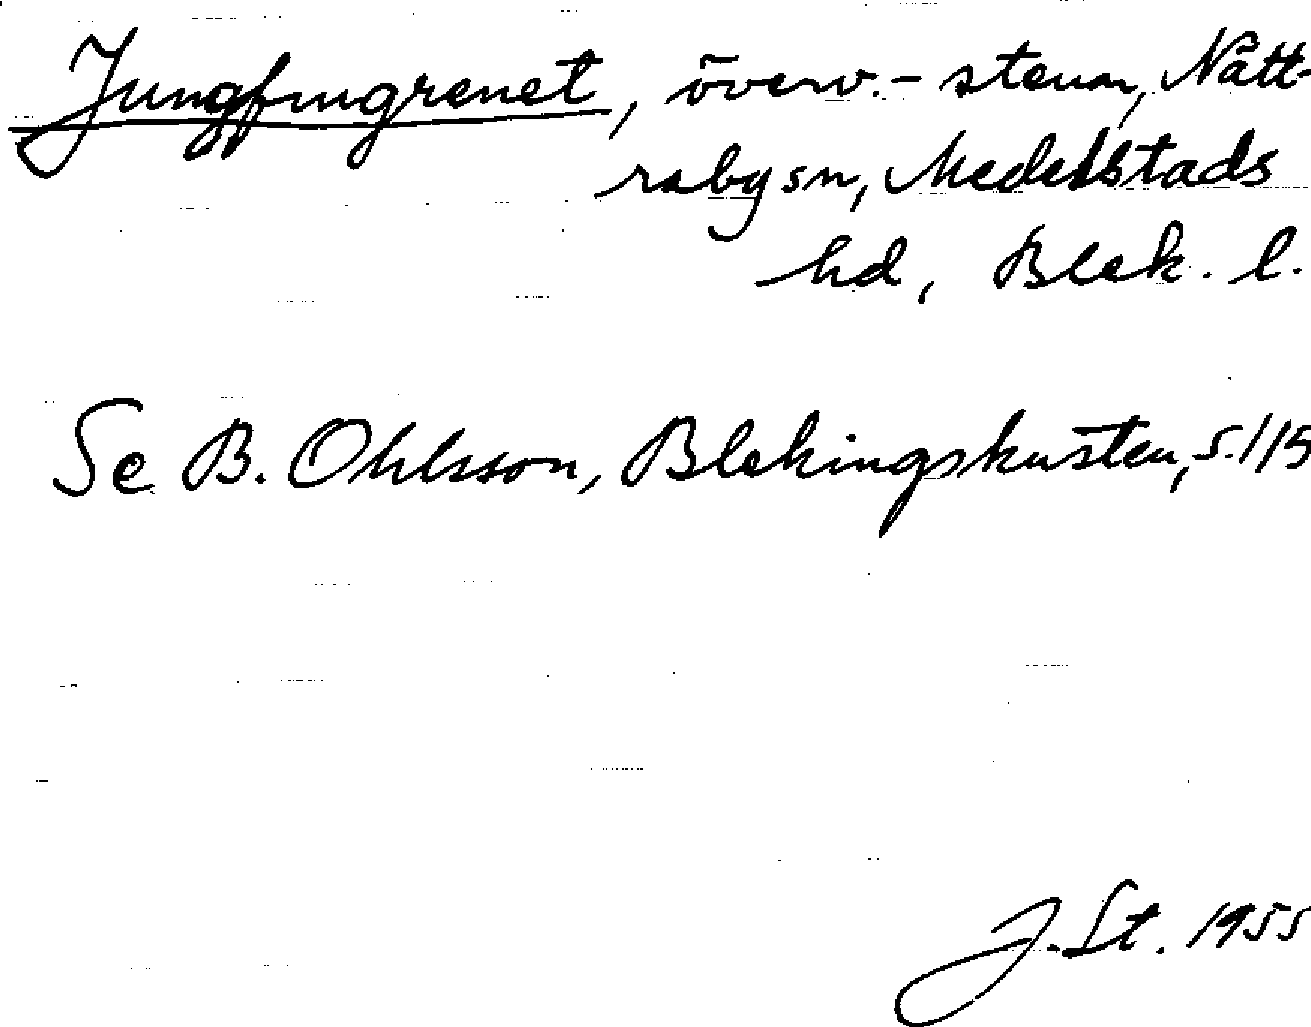 Jungfrugrenet, överv.-stenar, Nätt-
raby sn, Medelstads
hd, Blek. l.
Se B. Ohlsson, Blekingskusten, s. 115
J. St. 1955